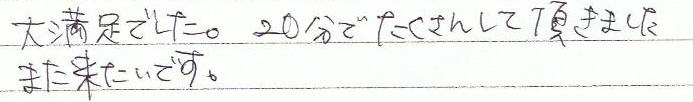 大満足でした。20分でたくさんして頂きました
また来たいです。